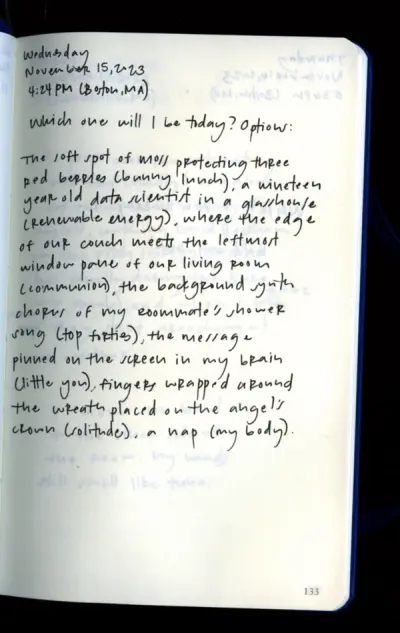 Wednesday
November 15, 2023
4:24 PM (Boston, MA)
Which one will I be today? Options:
The soft spot of moss protecting three
red berries (bunny lunch), a nineteen
year old data scientist in a glasshouse
(renewable energy), where the edge
of our couch meets the leftmost
window pane of our living room
(communion), the background synth
chorus of my roommate's shower
song (top forties), the message
pinned on the screen in my brain
(little you), fingers wrapped around
the wreath placed on the angel's
crown (solitude), a nap (my body).
133